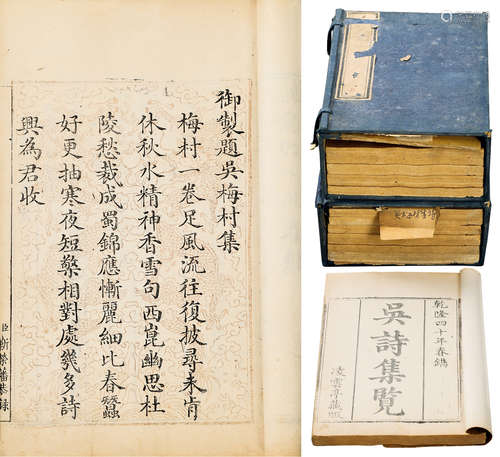 御製題吳梅村集
梅村一卷足風流往復披尋未肯
休秋水精神香雪句西崑幽思杜
陵愁裁成蜀錦應慚麗細比春蠶
好更抽寒夜短檠相對處幾多詩
興為君收
臣靳榮藩恭錄
乾隆四十年春鐫
吳詩集覽
凌雲亭藏版